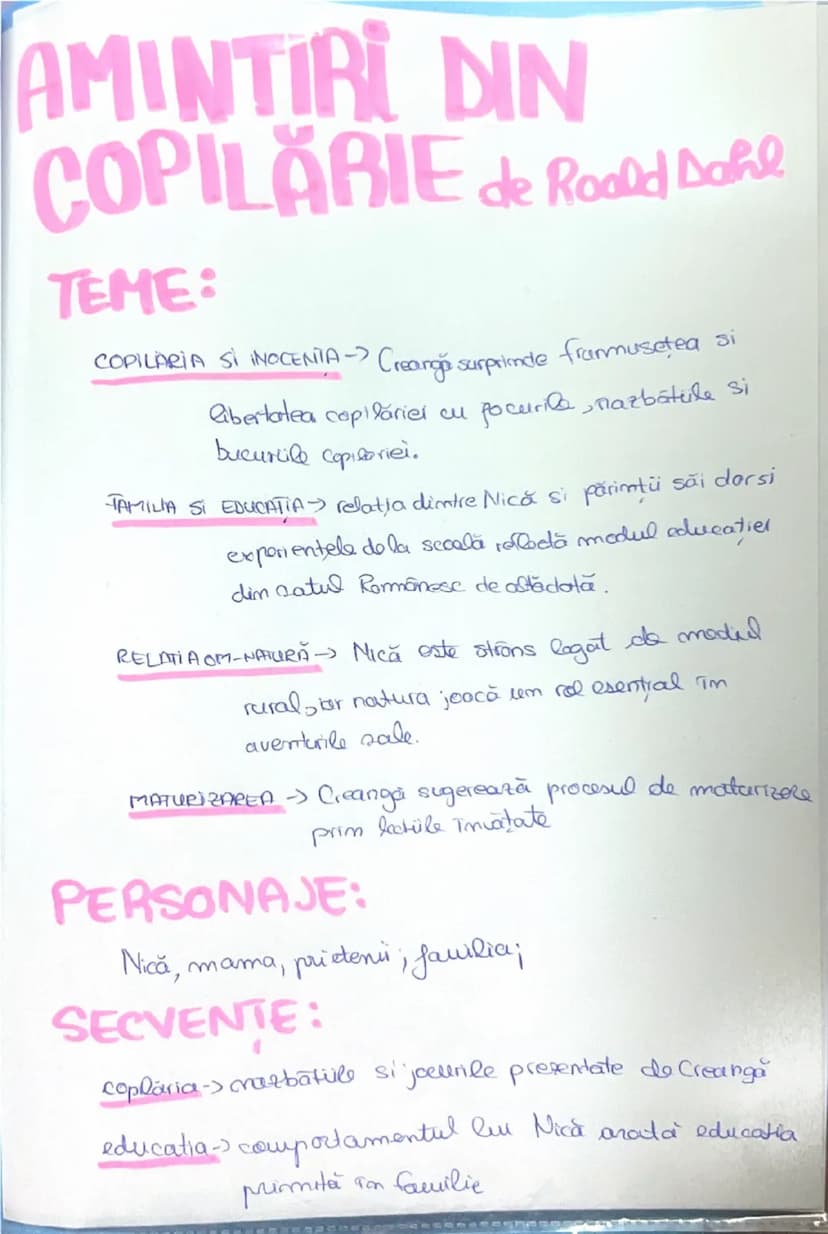 AMINTIRI DIN
COPILĂRIE de Roald Dahl
TEME:
COPILĂRIA SI INOCENȚA -> Creangă surprinde frumusețea si
libertatea copilăriei cu jocurile, nazbâtiile si
bucuriile copilăriei.
FAMILIA SI EDUCAȚIA -> relația dintre Nică si părinții săi dar si
experiențele de la scoală, reflectă modul educației
din satul Românesc de altădată.
RELATIA OM-NATURĂ -> Nică este strâns legat de mediul
rural, iar natura joacă un rol esențial în
aventurile sale.
MATURIZAREA -> Creangă sugerează procesul de maturizare
prin lectiile învățate
PERSONAJE:
Nică, mama, prietenii; familia;
SECVENȚE:
copilăria -> nazbâtiile si jocurile prezentate de Creangă
educatia -> comportamentul lui Nică arată educatia
primită în familie